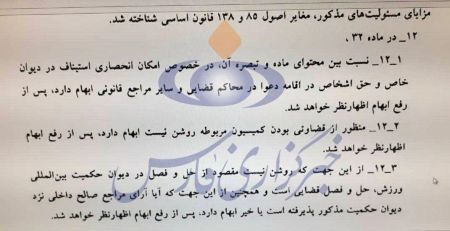 مزایای مسئولیت‌های مذکور، مغایر اصول ۸۵ و ۱۳۸ قانون اساسی شناخته شد.
۱۲_ در ماده ۳۲ ،
۱_۱۲_ نسبت بین محتوای ماده و تبصره آن، در خصوص امکان انحصاری استیناف در دیوان
خاص و حق اشخاص در اقامه دعوا در محاکم قضایی و سایر مراجع قانونی ابهام دارد، پس از
رفع ابهام اظهارنظر خواهد شد.
۲_۱۲_ منظور از قضاوتی بودن کمیسیون مربوطه روشن نیست ابهام دارد، پس از رفع ابهام
اظهارنظر خواهد شد.
۳_۱۲_ از این جهت که روشن نیست مقصود از حل و فصل در دیوان حکمیت بین‌المللی
ورزش، حل و فصل قضایی است و همچنین از این جهت که آیا آرای مراجع صالح داخلی نزد
دیوان حکمیت مذکور پذیرفته است یا خیر ابهام دارد. پس از رفع ابهام اظهارنظر خواهد شد.
خبرگزاری فارس